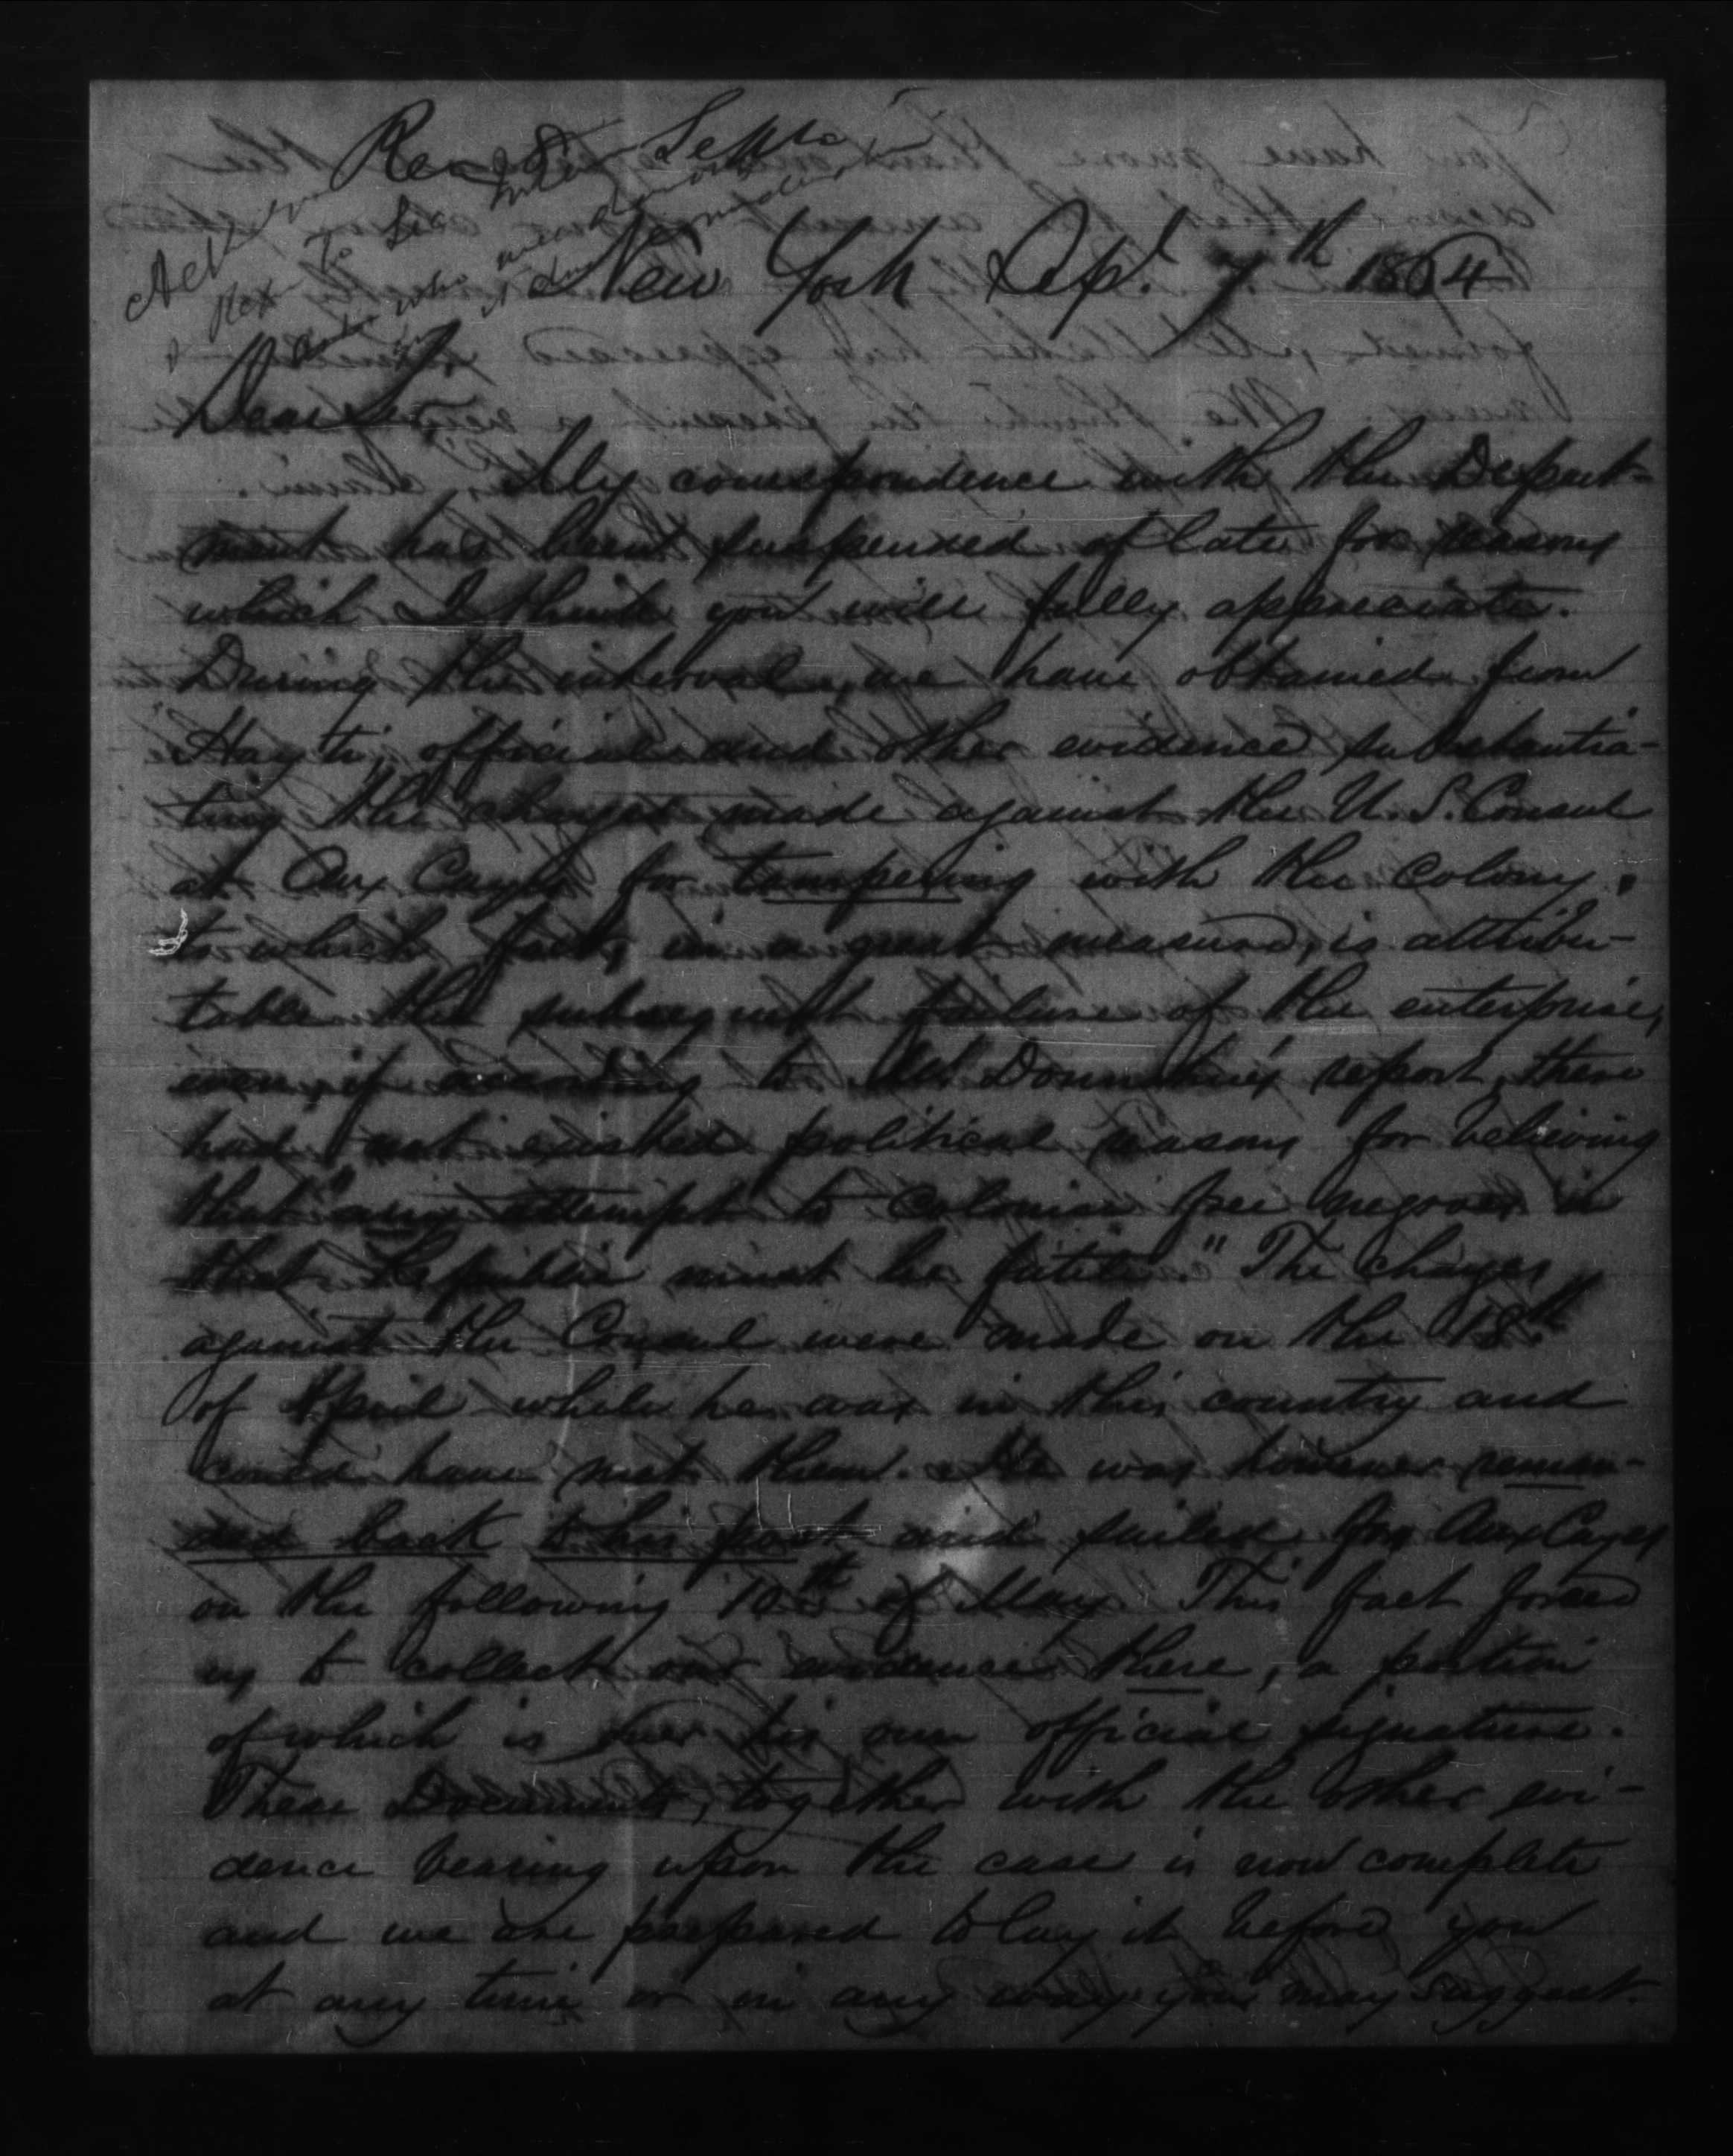 Recd Sept
New York Sept. 7th 1864
Dear Sir,
My correspondence with the Depart-
ment has been suspended of late for reasons
which I think you will fully appreciate.
During the interval, we have obtained from
Hayti, official and other evidence substantia-
ting the charges made against the U. S. Consul
at Aux Cayes for tampering with the colony;
to which fact, in a great measure, is attribu-
table the subsequent failure of the enterprise,
even if according to Mr. Donnohue's report, there
had not existed political reasons for believing
that "any attempt to colonise free negroes in
that Republic must be futile." The charges
against the Consul were made on the 18th
of April while he was in this country and
could have met them. He was however reman-
ded back to his post and sailed for Aux Cayes
on the following 10th of May. This fact forced
us to collect our evidence there, a portion
of which is over his own official signature.
These Documents, together with the other evi-
dence bearing upon the case is now complete
and we are prepared to lay it before you
at any time or in any way you may suggest.